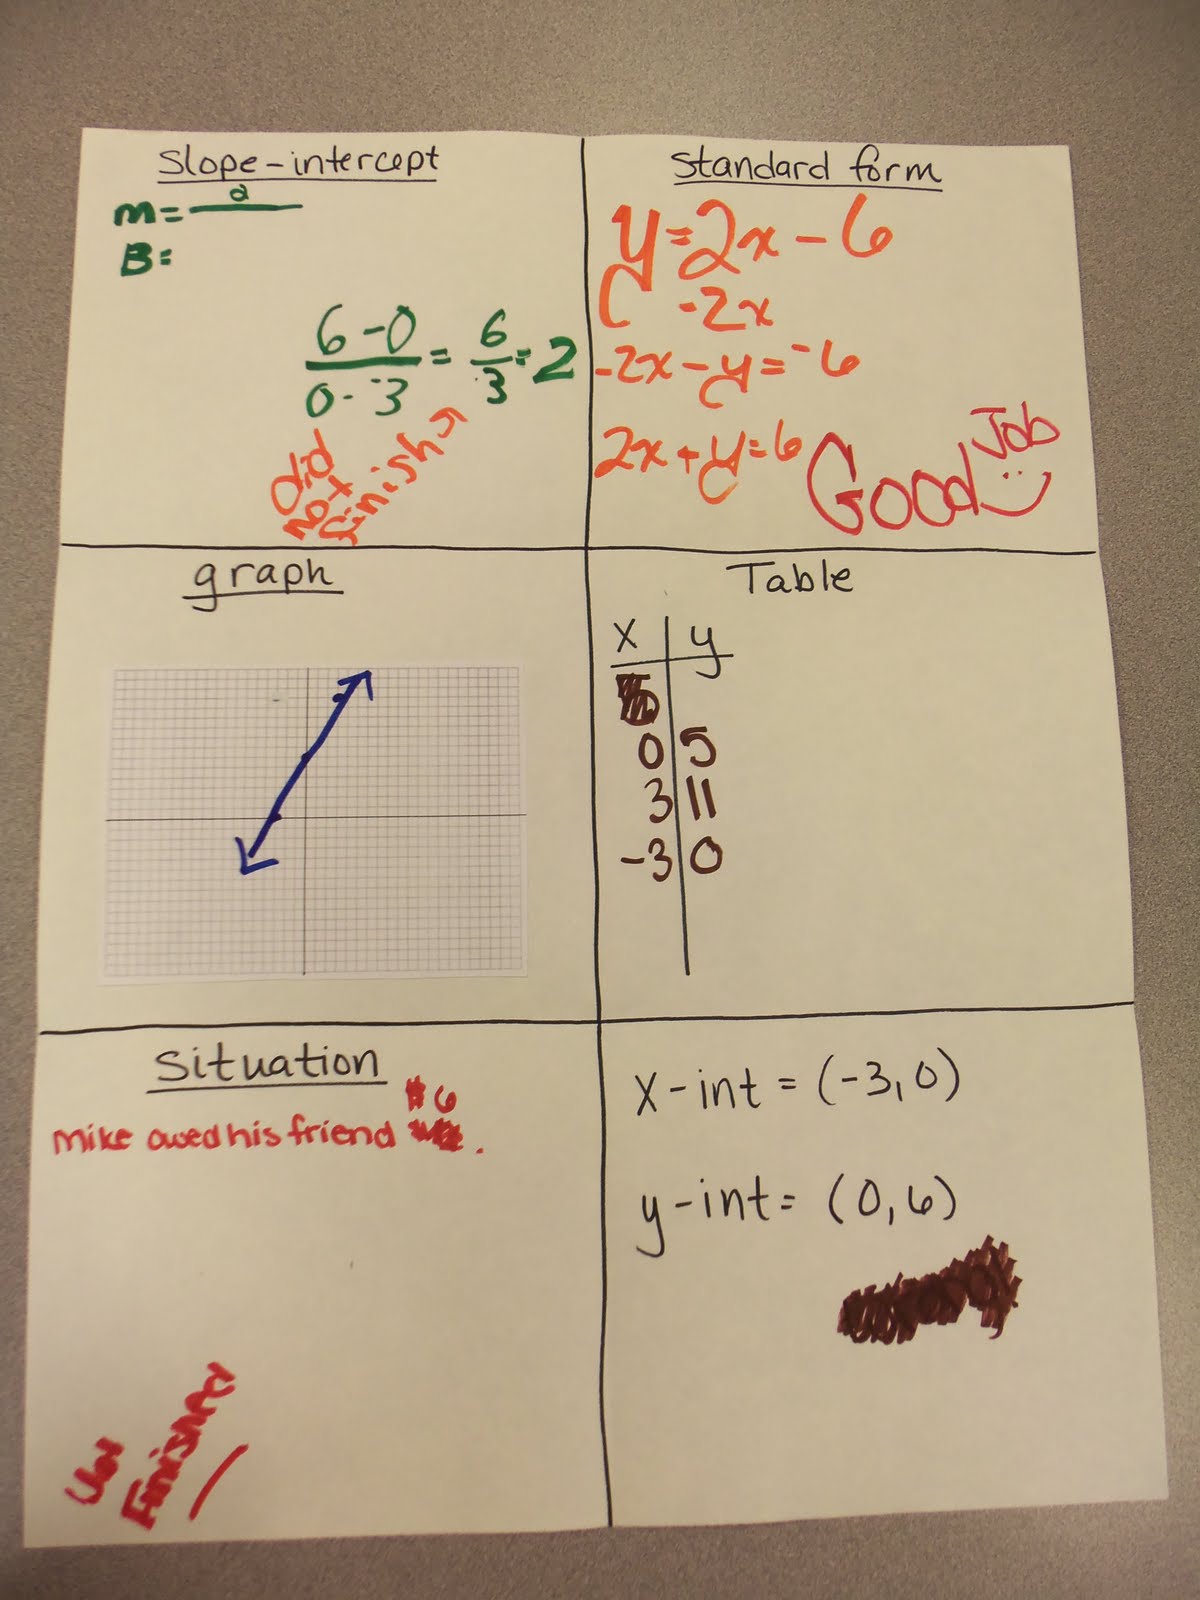 Slope-intercept
m= 2
B=
6-0 / 0--3 = 6/3 = 2
did
not
finish
Standard form
y=2x-6
-2x
-2x-y=-6
2x+y=6
Good Job
graph
Table
x y
0 5
3 11
-3 0
Situation
mike owed his friend $6.
Finished
x-int = (-3,0)
y-int = (0,6)